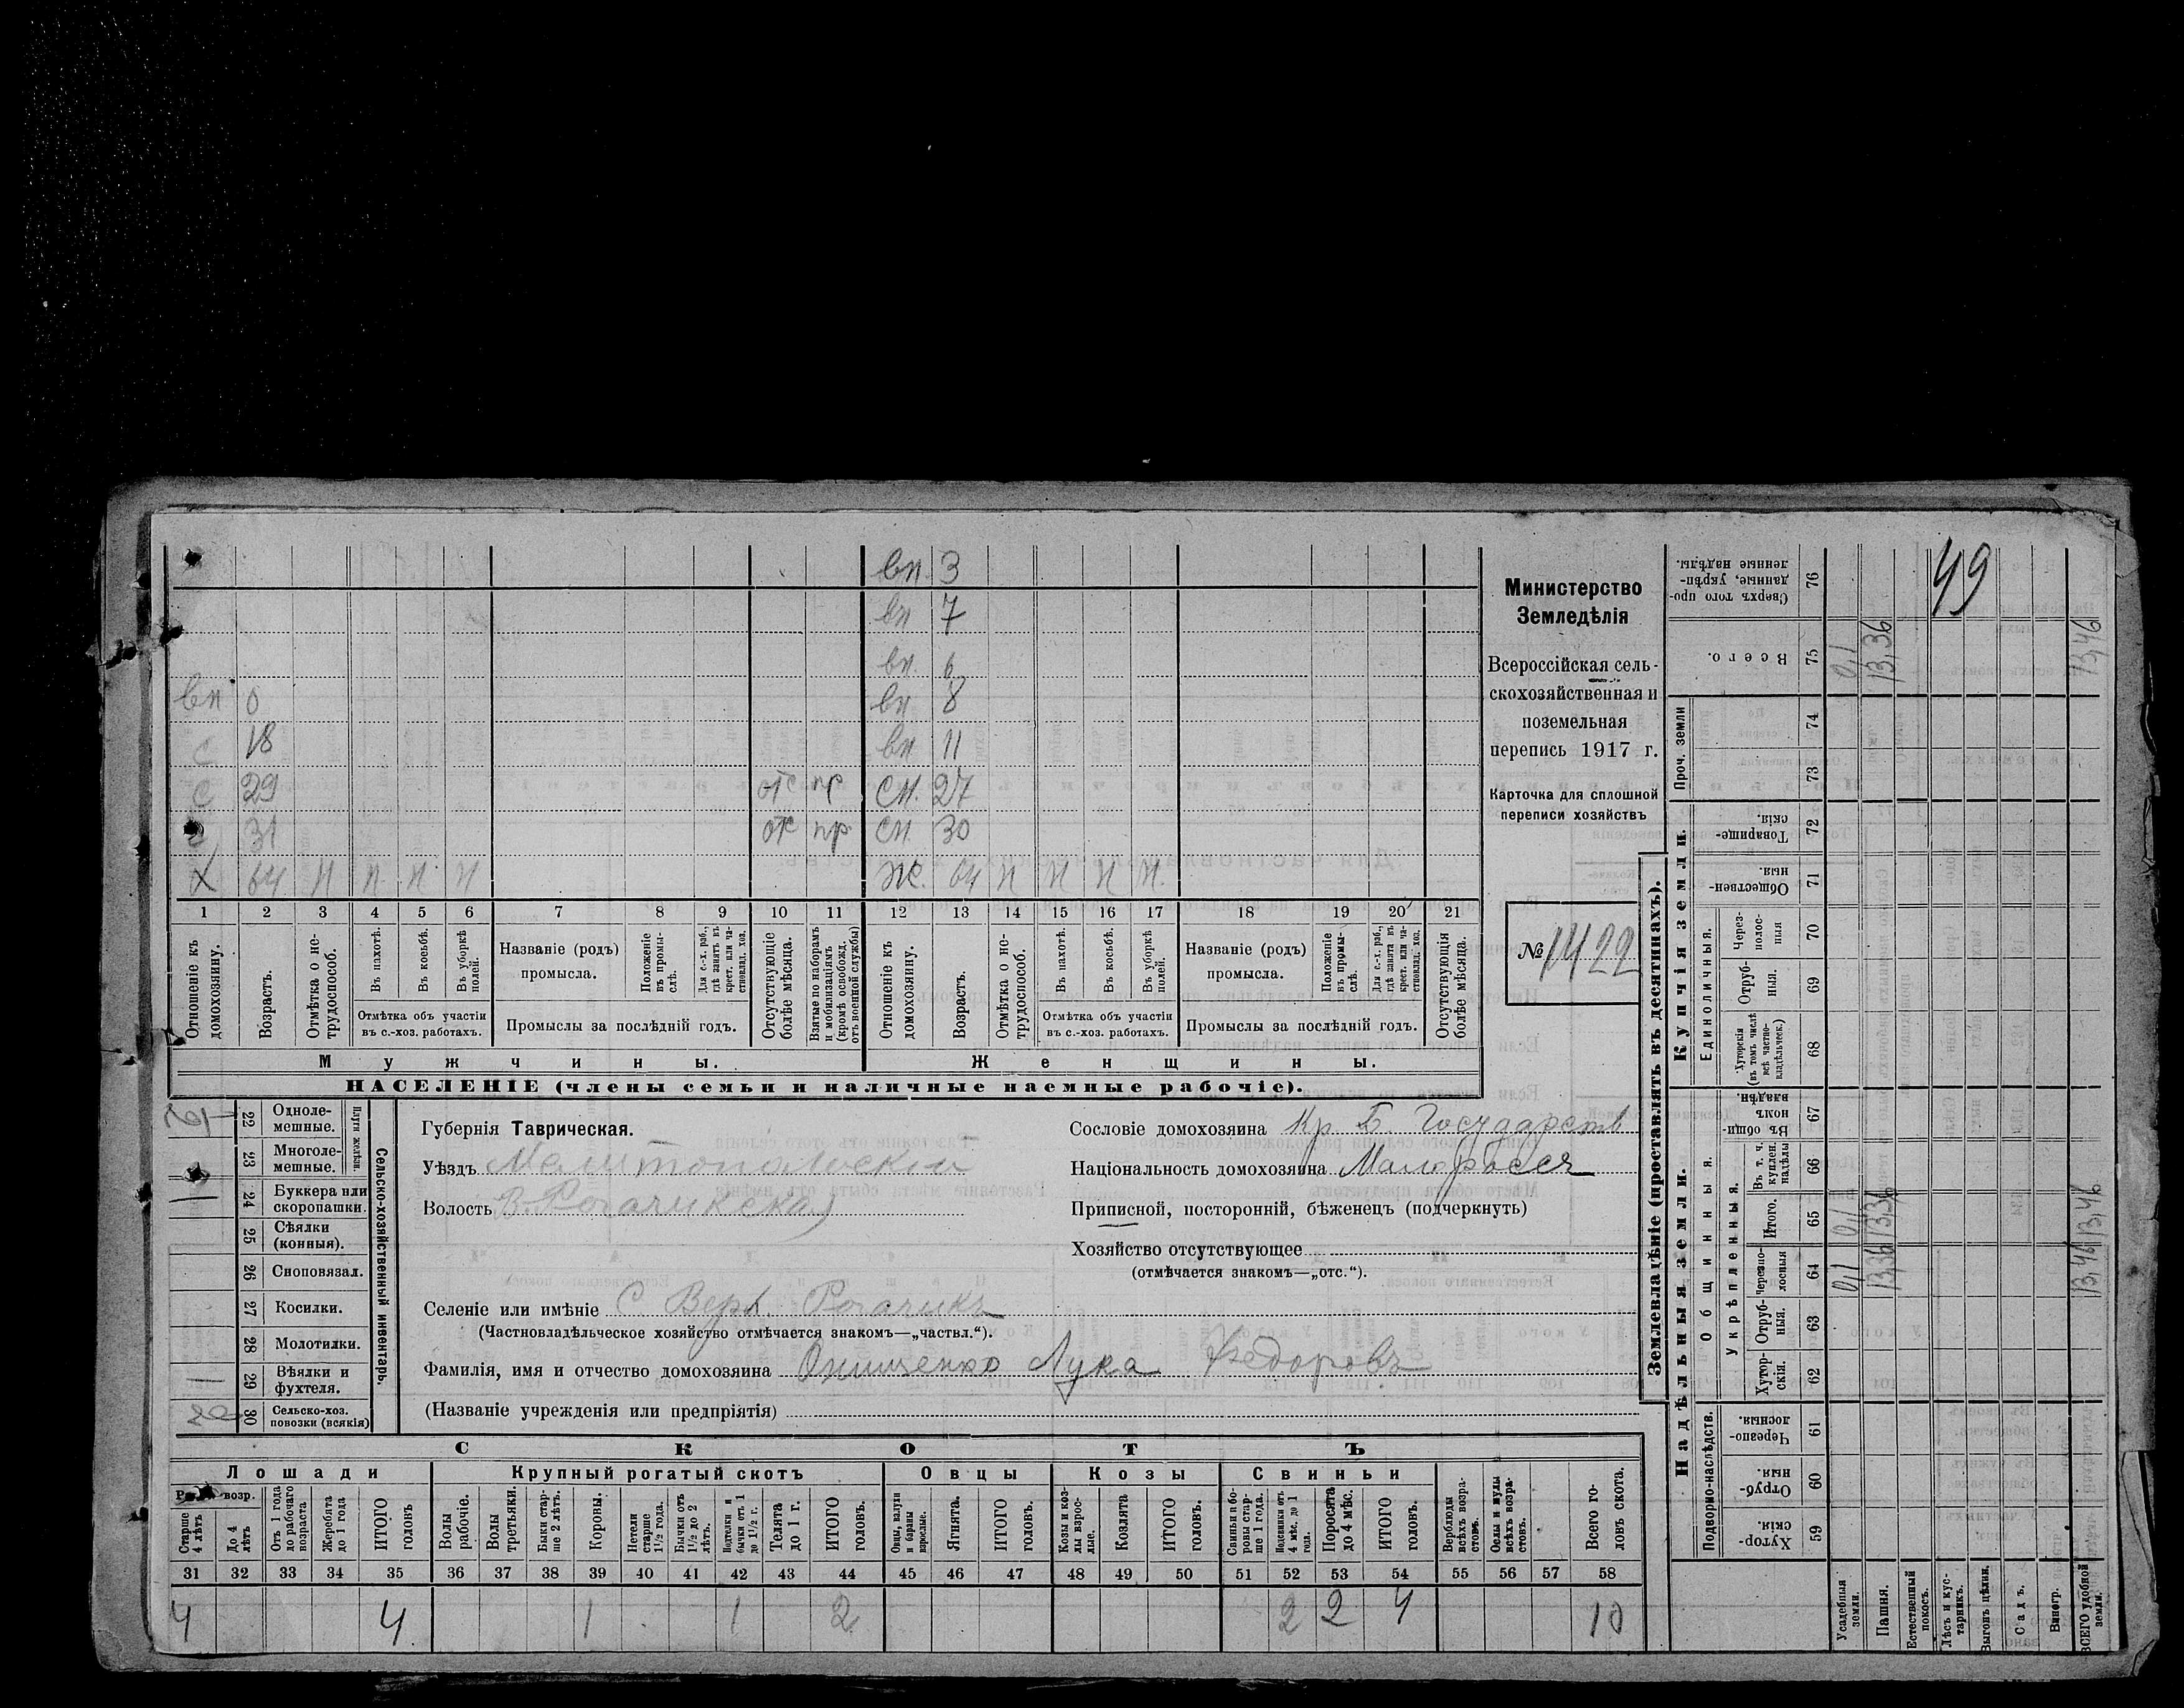 вп. 3
вп 7
вп. 6
вп 0 вп 8
с 18 вп 11
с 29 отс пр сн. 27
с 31 отс пр сн 30
х 64 н н н н же. 64 н н н н.
1 2 3 4 5 6 7 8 9 10 11 12 13 14 15 16 17 18 19 20 21
Отношеніе къ домохозяину.
Возрастъ.
Отмѣтка о нетрудоспособ.
Въ пахотѣ.
Въ косьбѣ.
Въ уборкѣ полей.
Отмѣтка объ участіи въ с.-хоз. работахъ.
Названіе (родъ) промысла.
Положеніе въ промыслѣ.
Для с.-х. раб., гдѣ занятъ въ крест. или частновлад. хоз.
Промыслы за послѣдній годъ.
Отсутствующіе болѣе мѣсяца.
Взятые по наборамъ и мобилизаціямъ (кромѣ освобожд. отъ военной службы)
Отношеніе къ домохозяину.
Возрастъ.
Отмѣтка о нетрудоспособ.
Въ пахотѣ.
Въ косьбѣ.
Въ уборкѣ полей.
Отмѣтка объ участіи въ с.-хоз. работахъ.
Названіе (родъ) промысла.
Положеніе въ промыслѣ.
Для с.-х. раб., гдѣ занята въ крест. или частновлад. хоз.
Промыслы за послѣдній годъ.
Отсутствующія болѣе мѣсяца.
Мужчины. Женщины.
НАСЕЛЕНІЕ (члены семьи и наличные наемные рабочіе).
Министерство
Земледѣлія
Всероссійская сель-
скохозяйственная и
поземельная
перепись 1917 г.
Карточка для сплошной
переписи хозяйствъ
№ 1422
22 Одноле-мешные.
23 Многоле-мешные.
Плуги желѣзн.
1 24 Буккера или скоропашки.
25 Сѣялки (конныя).
26 Сноповязал.
27 Косилки.
28 Молотилки.
1 29 Вѣялки и фухтеля.
30 Сельско-хоз. повозки (всякія)
Сельско-хозяйственный инвентарь.
Губернія Таврическая.
Уѣздъ Мелитопольскій
Волость В. Рогачикская
Селеніе или имѣніе С Верх. Рогачикъ
(Частновладѣльческое хозяйство отмѣчается знакомъ—„частвл.“).
Фамилія, имя и отчество домохозяина Онищенко Лука Ѳедоровъ
(Названіе учрежденія или предпріятія)
Сословіе домохозяина Кр Б. Государств
Національность домохозяина Малороссъ
Приписной, посторонній, бѣженецъ (подчеркнуть)
Хозяйство отсутствующее
(отмѣчается знакомъ—„отс.“).
СКОТЪ
Лошади Крупный рогатый скотъ Овцы Козы Свиньи
возр.
Старше 4 лѣтъ
До 4 лѣтъ
Отъ 1 года до рабочаго возраста
Жеребята до 1 года
ИТОГО головъ
Волы рабочіе.
Волы третьяки.
Быки старше 2 лѣтъ.
Коровы.
Нетели старше 1½ года.
Бычки отъ 1½ до 2 лѣтъ.
Подтелки и бычки отъ 1 до 1½ г.
Телята до 1 г.
ИТОГО головъ.
Овцы, валухи и бараны взрослые.
Ягнята.
ИТОГО головъ.
Козы и козлы взрослые.
Козлята
ИТОГО головъ.
Свиньи и боровы старше 1 года.
Подсвинки отъ 4 мѣс. до 1 года.
Поросята до 4 мѣс.
ИТОГО головъ.
Верблюды всѣхъ возрастовъ.
Ослы и мулы всѣхъ возрастовъ.
Всего головъ скота.
31 32 33 34 35 36 37 38 39 40 41 42 43 44 45 46 47 48 49 50 51 52 53 54 55 56 57 58
4 4 1 1 2 2 2 4 10
Землевладѣніе (проставлять въ десятинахъ).
Надѣльныя земли. Купчія земли. Проч. земли
Подворно-наслѣдств. Общинныя. Единоличныя.
Укрѣпленныя.
Хуторскія 59
Отрубныя. 60
Черезполосныя. 61
Хуторскія. 62
Отрубныя. 63
Черезполосныя 64
Итого. 65
Въ т. ч. куплен. надѣлы 66
Въ общинномъ владѣн. 67
Хуторскія (въ томъ числѣ всѣ частновладѣльческ.) 68
Отрубныя. 69
Черезполосныя 70
Общественныя. 71
Товарищескія. 72
73
74
Всего. 75
Сверхъ того проданные, укрѣпленные надѣлы. 76
Усадебныя земли. 0,1 0,1 0,1
Пашня. 13,36 13,36 13,36
Естественный покосъ.
Лѣсъ и кустарникъ.
Выгонъ цѣлин.
Садъ.
Виногр.
ВСЕГО удобной земли. 13,46 13,46 13,46
49